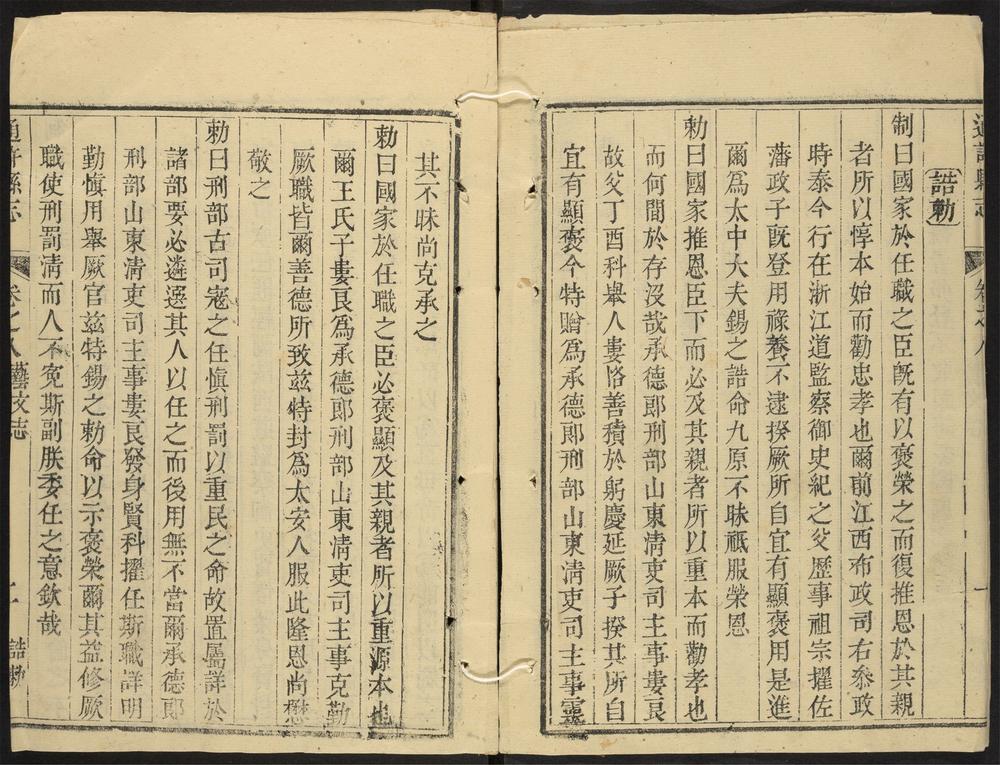 通許縣志
卷之八
一
誥勅
制曰國家於任職之臣旣有以褒榮之而復推恩於其親
者所以惇本始而勸忠孝也爾前江西布政司右叅政
時泰今行在浙江道監察御史紀之父歷事祖宗擢佐
藩政子旣登用祿養不逮揆厥所自宜有顯褒用是進
爾爲太中大夫錫之誥命九原不昧祗服榮恩
勅曰國家推恩臣下而必及其親者所以重本而勸孝也
而何間於存沒哉承德郞刑部山東淸吏司主事婁良
故父丁酉科舉人婁恪善積於躬慶延厥子揆其所自
宜有顯褒今特贈爲承德郞刑部山東淸吏司主事靈
其不昧尚克承之
勅曰國家於任職之臣必褒顯及其親者所以重源本也
爾王氏子婁良爲承德郞刑部山東淸吏司主事克勤
厥職皆爾善德所致兹特封爲太安人服此隆恩尚懋
敬之
勅曰刑部古司宼之任愼刑罰以重民之命故置屬詳於
諸部要必遴選其人以任之而後用無不當爾承德郞
刑部山東淸吏司主事婁良發身賢科擢任斯職詳明
勤愼用舉厥官兹特錫之勅命以示褒榮爾其益修厥
職使刑罰淸而人不寃斯副朕委任之意欽哉
通許縣志
卷之八藝文志
二
誥勅